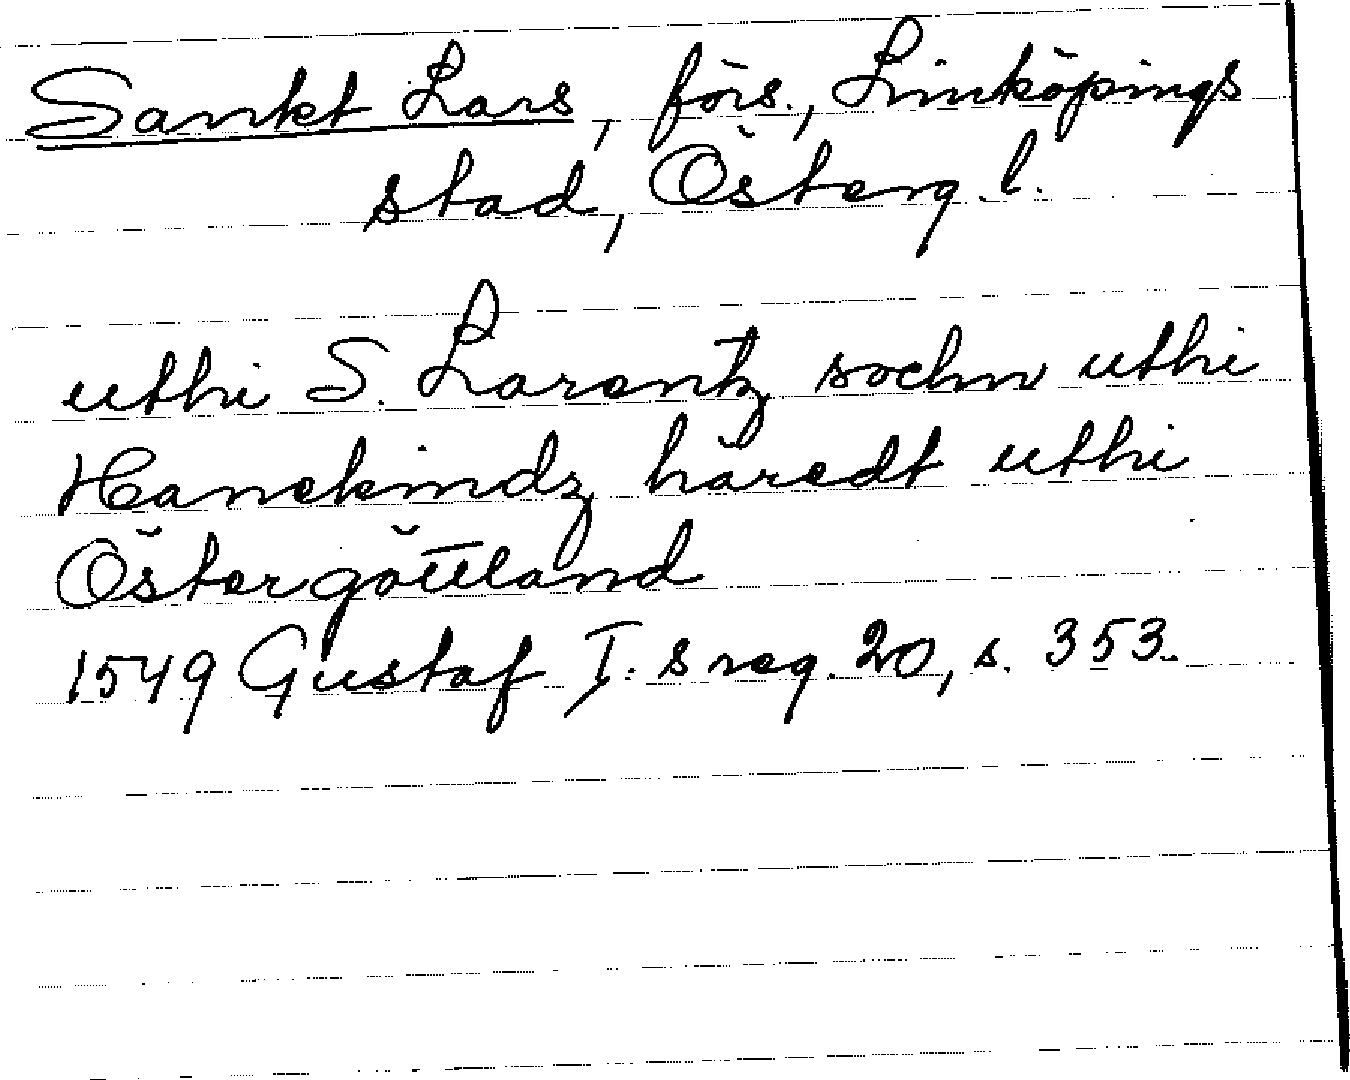 Sankt Lars, förs., Linköpings
stad, Österg. l.
uthi S. Larentz sochn uthi
Hanekindz häredt uthi
Östergöttland
1549 Gustaf I:s reg. 20, s. 353.